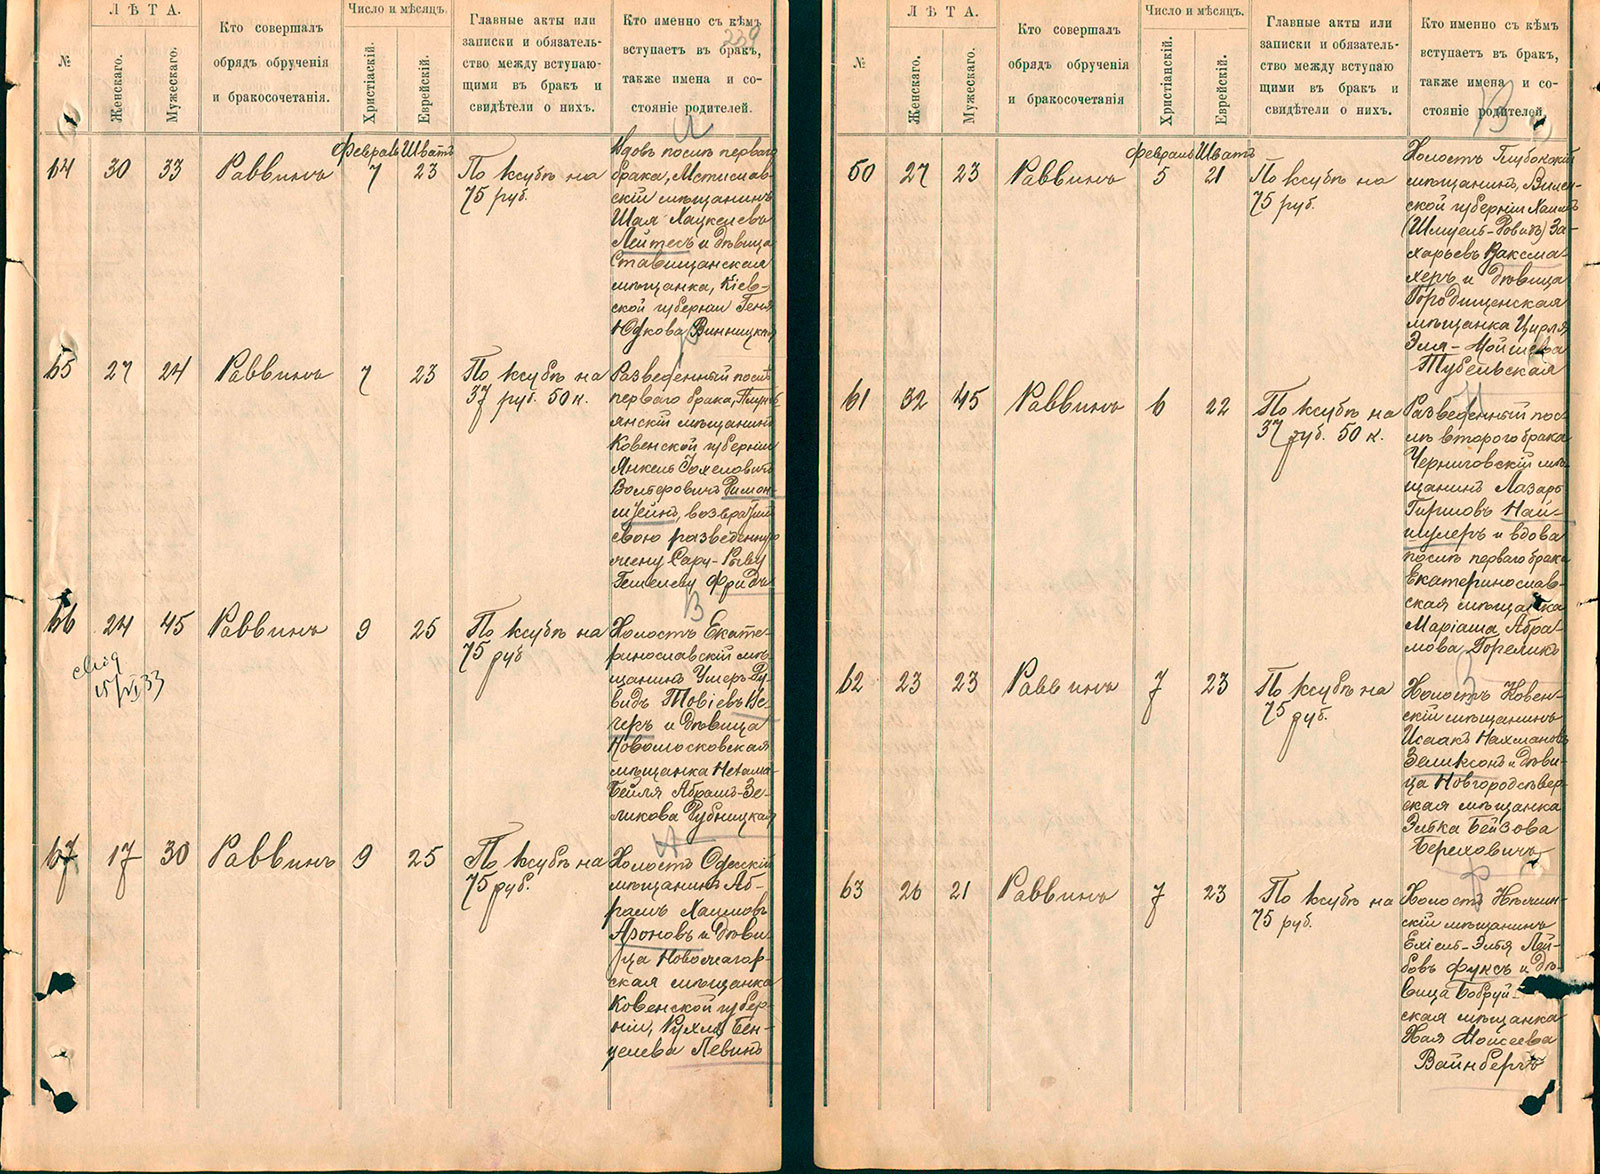 №
ЛѢТА.
Женскаго.
Мужескаго.
Кто совершалъ
обрядъ обрученія
и бракосочетанія.
Число и мѣсяцъ.
Христіаскій.
Еврейскій.
Главные акты или
записки и обязатель-
ство между вступаю-
щими въ бракъ и
свидѣтели о нихъ.
Кто именно съ кѣмъ
вступаетъ въ бракъ,
также имена и со-
стояніе родителей.
239
64 30 33 Раввинъ
Февраль Шватъ
7 23
По ксубѣ на
75 руб.
Вдовъ послѣ перваго
брака, Мстислав-
скій мѣщанинъ
Шая Хацкелевъ
Лейтесъ и дѣвица
Ставищанская
мѣщанка, Кіев-
ской губерніи Геня
Юдкова Винницкая
65 27 24 Раввинъ 7 23
По ксубѣ на
37 руб. 50 к.
Разведенный послѣ
перваго брака,
янскій мѣщанинъ
Ковенской губерніи
Янкель
Вольеровичъ Римон-
штейнъ, возвратилъ
свою разведенную
жену Сару-Ривку
Гешелеву Фридъ
66 24 45 Раввинъ 9 25
По ксубѣ на
75 руб
Холостъ Екате-
ринославскій мѣ-
щанинъ Ушеръ-Ду-
видъ Товіевъ Ве-
черъ и дѣвица
Новомосковская
мѣщанка Нехама-
Бейля Абрамъ-Зе-
ликова Дубницкая
67 17 30 Раввинъ 9 25
По ксубѣ на
75 руб.
Холостъ Одесскій
мѣщанинъ Аб-
рамъ Хаимовъ
Ароновъ и дѣви-
ца Новожагор-
ская мѣщанка
Ковенской губер-
ніи, Рухля Бен-
целева Левинъ
№
ЛѢТА.
Женскаго.
Мужескаго.
Кто совершалъ
обрядъ обрученія
и бракосочетанія
Число и мѣсяцъ.
Христіанскій.
Еврейскій.
Главные акты или
записки и обязатель-
ство между вступаю
щими въ бракъ и
свидѣтели о нихъ.
Кто именно съ кѣмъ
вступаетъ въ бракъ,
также имена и со-
стояніе родителей.
60 27 23 Раввинъ
Февраль Шватъ
5 21
По ксубѣ на
75 руб.
Холостъ Глубокскій
мѣщанинъ, Вилен-
ской губерніи Хаимъ
(Шмуель-Довидъ) За-
харьевъ Ваксма-
херъ и дѣвица
Городищенская
мѣщанка Цирля
Эля-Мойшева
Тубельская
61 32 45 Раввинъ 6 22
По ксубѣ на
37 руб. 50 к.
Разведенный пос-
лѣ второго брака
Черниговскій мѣ-
щанинъ Лазарь
Гиршовъ Най-
шулеръ и вдова
послѣ перваго брака
Екатеринослав-
ская мѣщанка
Маріаша Абра-
мова Гореликъ
62 23 23 Раввинъ 7 23
По ксубѣ на
75 руб.
Холостъ Ковен-
скій мѣщанинъ
Исаакъ Нахмановъ
Зеликсонъ и дѣви-
ца Новгородсѣвер-
ская мѣщанка
Элька Бейзова
Береховичъ
63 26 21 Раввинъ 7 23
По ксубѣ на
75 руб.
Холостъ
скій мѣщанинъ
Ехіель-Эля Лей-
бовъ Фуксъ и дѣ-
вица Бобруй-
ская мѣщанка
Хая Моисеева
Вайнбергъ